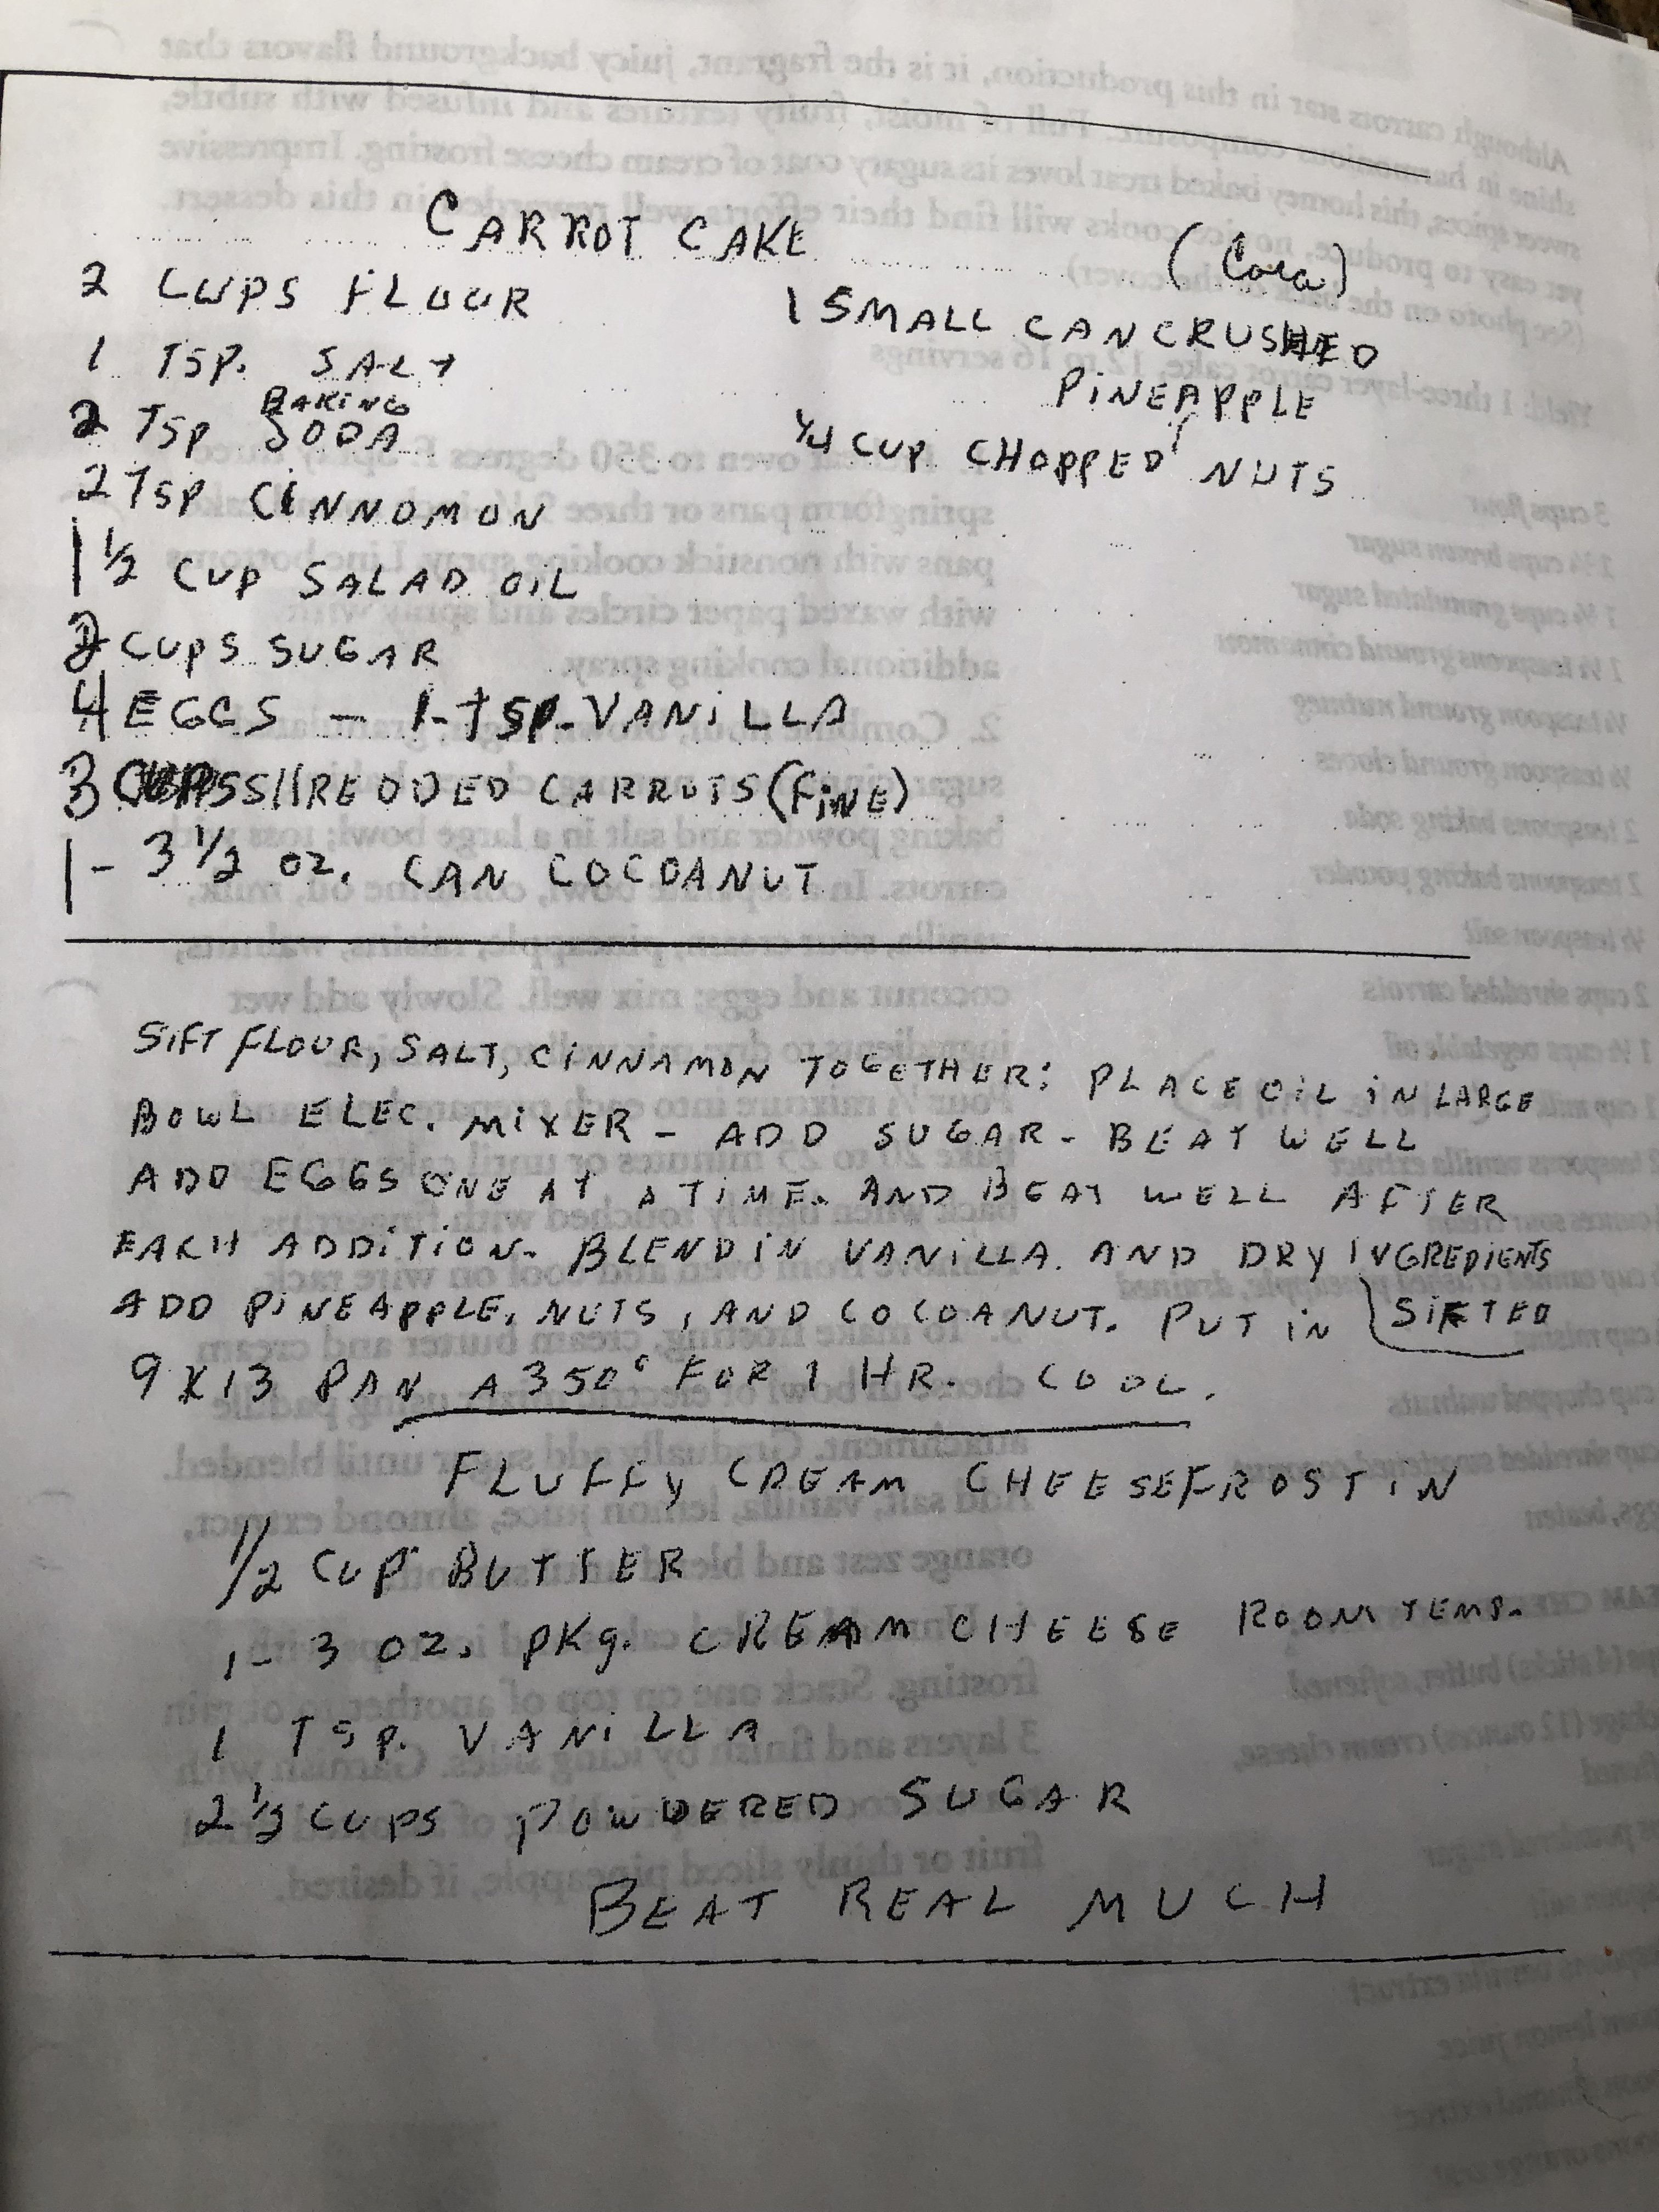 CARROT CAKE
(Cora)
2 CUPS FLOUR
1 TSP. SALT
2 TSP BAKING SODA
2 TSP CINNOMON
1 1/2 CUP SALAD OIL
2 CUPS SUGAR
4 EGGS - 1-TSP-VANILLA
3 CUPS SHREDDED CARROTS (FINE)
1- 3 1/2 OZ. CAN COCOANUT
1 SMALL CAN CRUSHED
PINEAPPLE
1/4 CUP CHOPPED NUTS
SIFT FLOUR, SALT, CINNAMON TOGETHER: PLACE OIL IN LARGE
BOWL ELEC. MIXER - ADD SUGAR - BEAT WELL
ADD EGGS ONE AT A TIME. AND BEAT WELL AFTER
EACH ADDITION. BLEND IN VANILLA. AND DRY INGREDIENTS
ADD PINEAPPLE, NUTS, AND COCOANUT. PUT IN SIFTED
9 X 13 PAN A 350° FOR 1 HR. COOL.
FLUFFY CREAM CHEESE FROSTIN
1/2 CUP BUTTER
1- 3 OZ. PKg. CREAM CHEESE ROOM TEMP.
1 TSP. VANILLA
2 1/2 CUPS POWDERED SUGAR
BEAT REAL MUCH